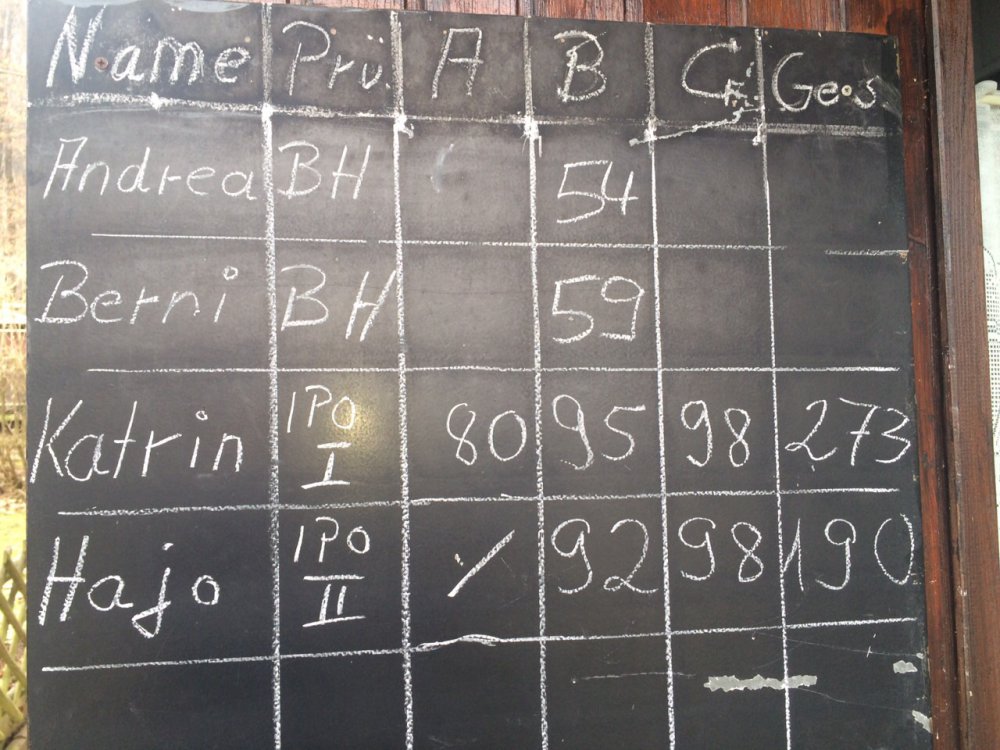 Name Prü. A B C Ges.
Andrea BH 54
Berni BH 59
Katrin IPO I 80 95 98 273
Hajo IPO II ⁒ 92 98 190